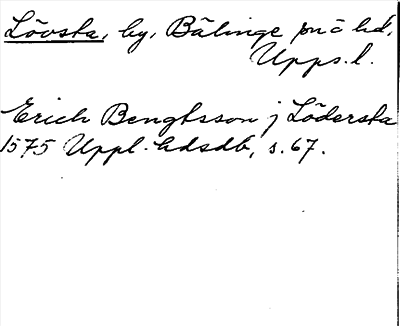 Lövsta, by, Bälinge sn o hd,
Upps. l.
Erich Bengtsson j Lödersta
1575 Uppl. hdsdb, s. 67.